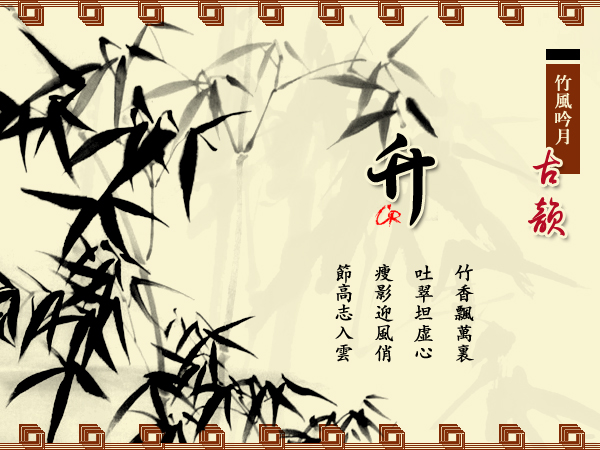 竹風吟月
古韻
升
CR
竹香飄萬裏
吐翠坦虛心
瘦影迎風俏
節高志入雲